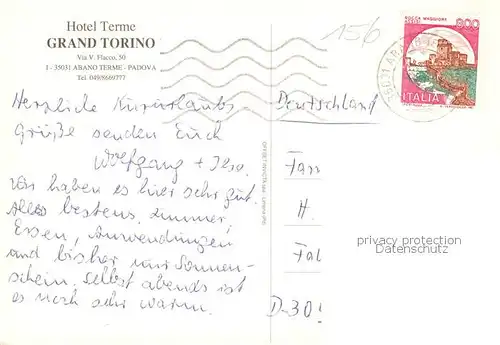 Hotel Terme
GRAND TORINO
Via V. Flacco, 50
I - 35031 ABANO TERME - PADOVA
Tel. 049/8669777
156
ROCCA MAGGIORE
800
ITALIA
Herzliche Kururlaubs-
Grüße senden Euch
Wolfgang + Ilse.
Wir haben es hier sehr gut.
Alles bestens, Zimmer,
Essen, Anwendungen
und bisher nur Sonnen-
schein. Selbst abends ist
es noch sehr warm.
Deutschland
Fam
H.
Fal
D-30
privacy protection
Datenschutz